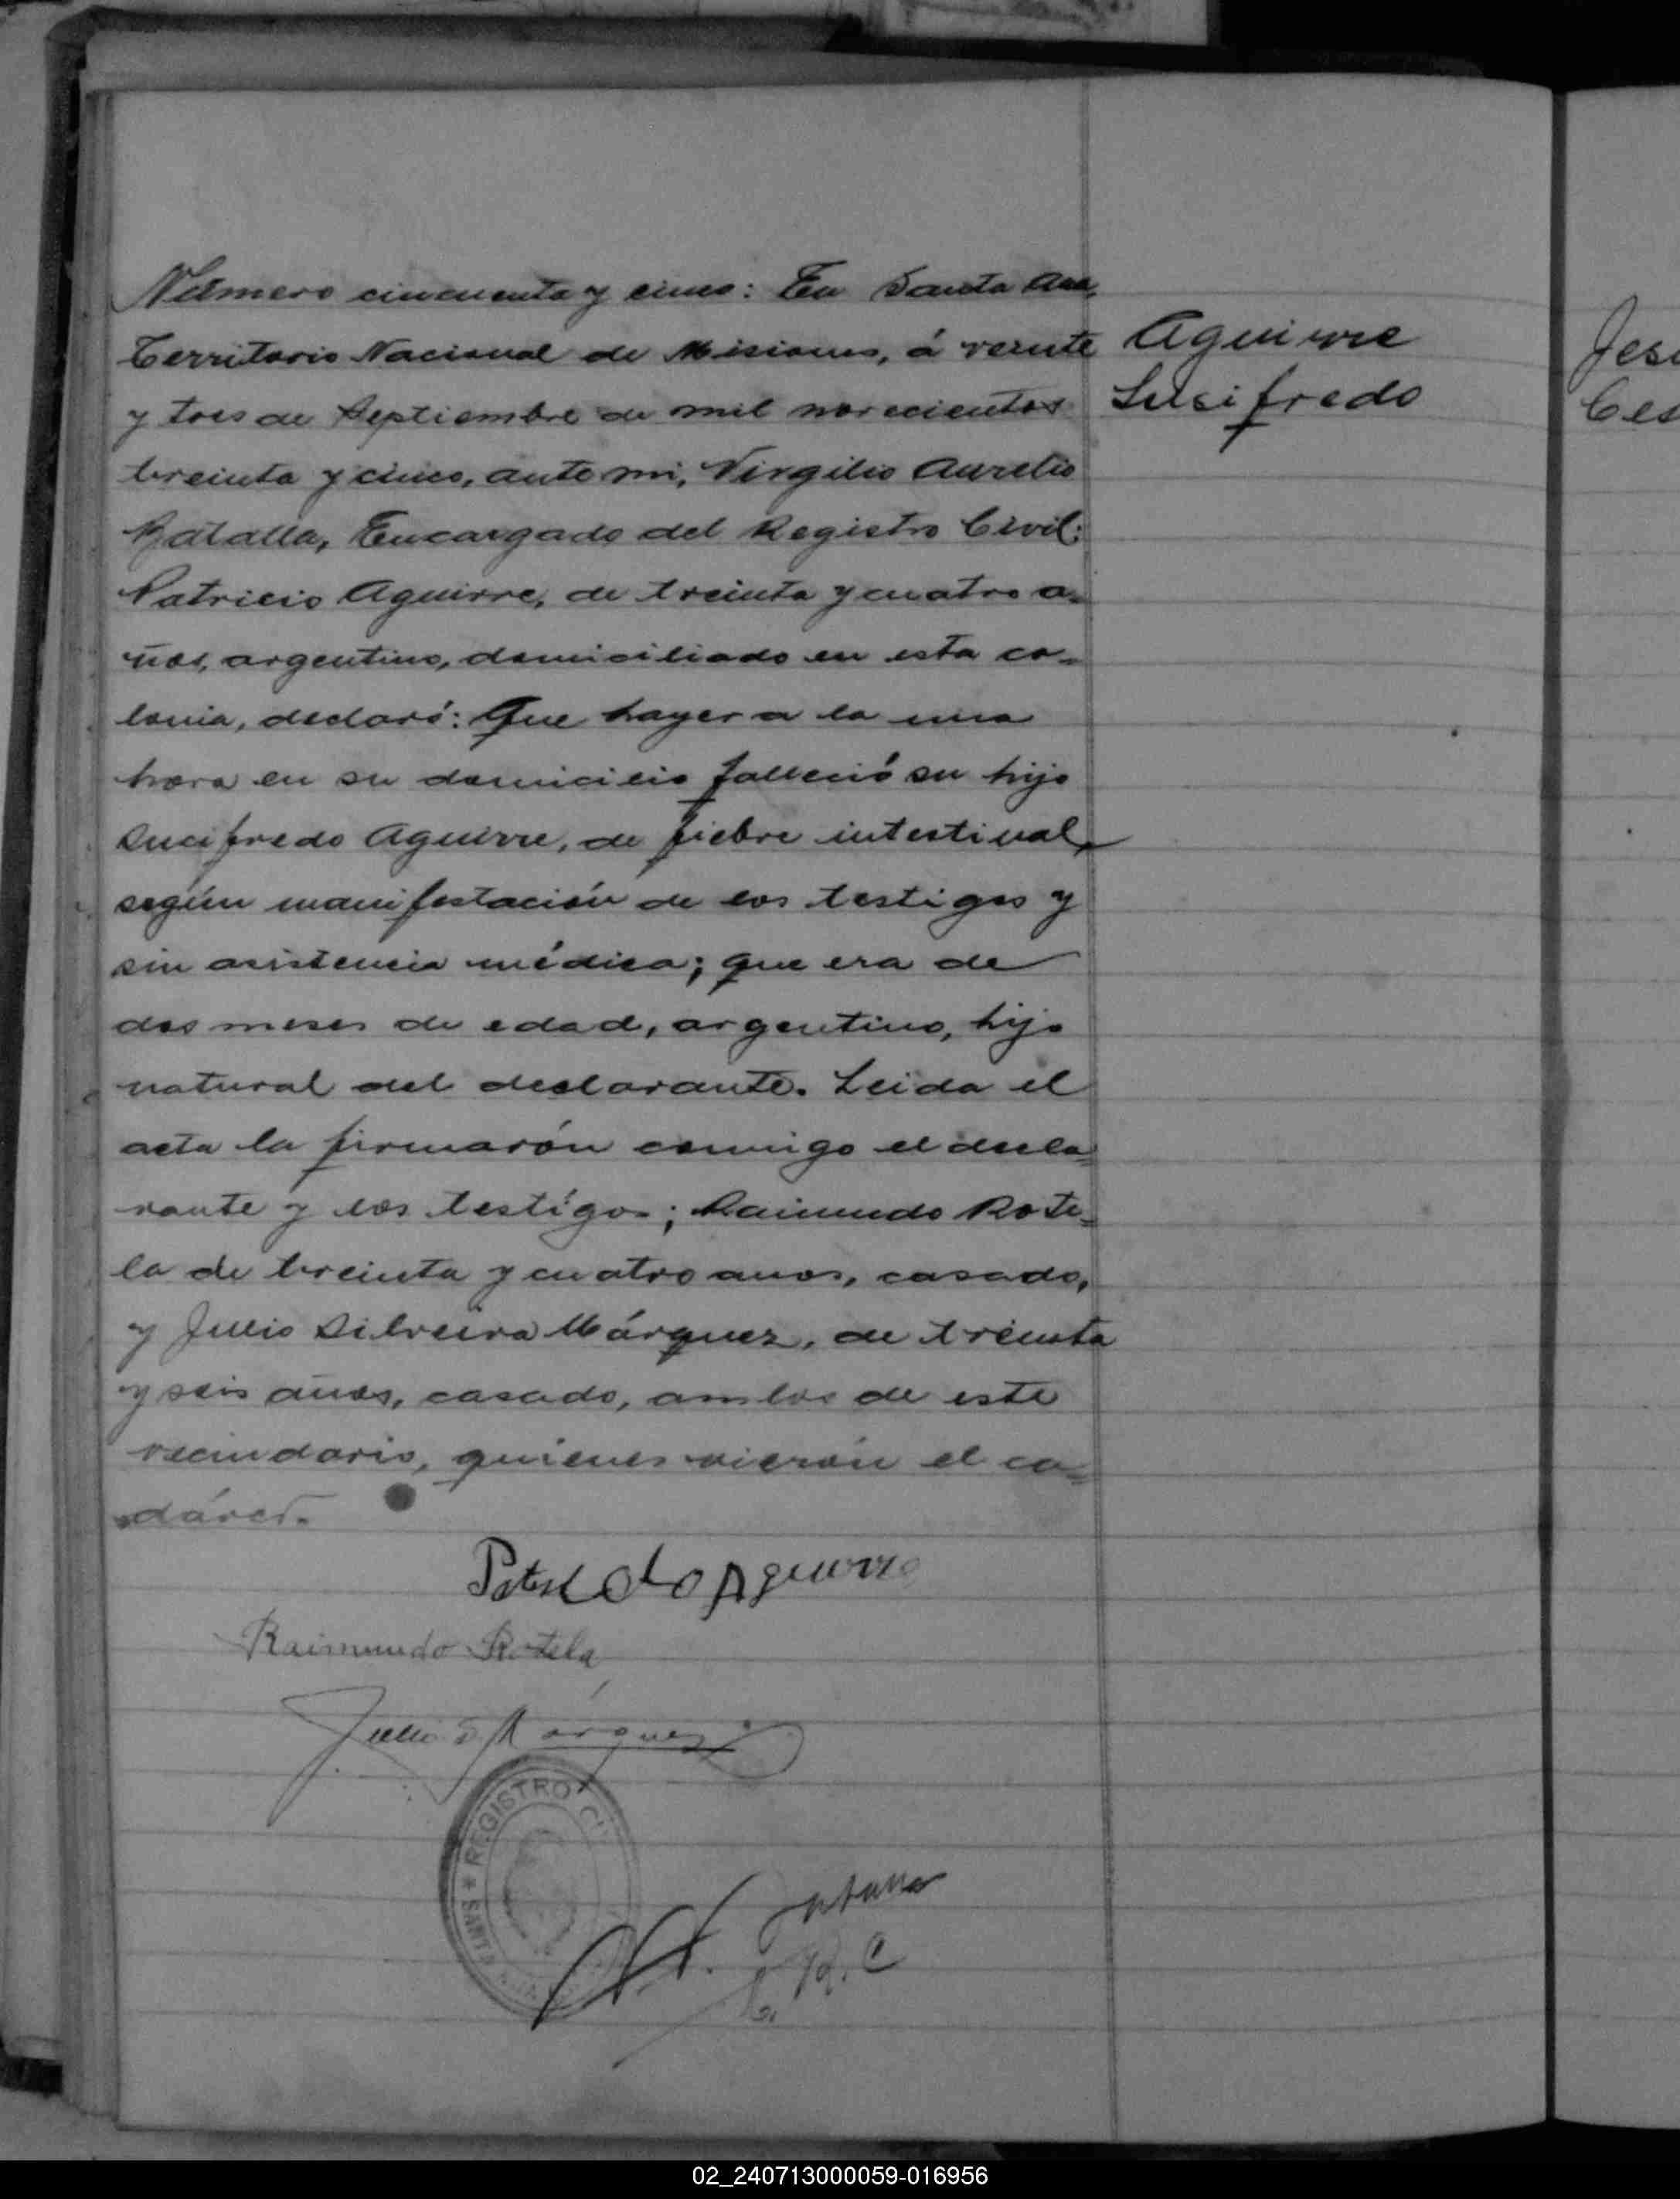 Número cincuenta y cinco: En Santa Ana,
Territorio Nacional de Misiones, á veinte
y tres de Septiembre de mil novecientos
treinta y cinco, ante mi, Virgilio Aurelio
Batalla, Encargado del Registro Civil:
Patricio Aguirre, de treinta y cuatro a=
ños, argentino, domiciliado en esta co=
lonia, declaró: Que hayer a la una
hora en su domicilio falleció su hijo
Sucifredo Aguirre, de fiebre intestinal,
según manifestación de los testigos y
sin asistencia médica; que era de
dos meses de edad, argentino, hijo
natural del declarante. Leida el
acta la firmarón conmigo el decla=
rante y los testigos; Raimundo Rote=
la de treinta y cuatro anos, casado,
y Julio Silveira Márquez, de treinta
y seis años, casado, ambos de este
vecindario, quienes vierón el ca=
dáver.
Aguirre
Susifredo
Aguirre
Raimundo Rotela
Julio S. Márquez
* REGISTRO
SANTA
R. C
Jes
Ces
02_240713000059-016956